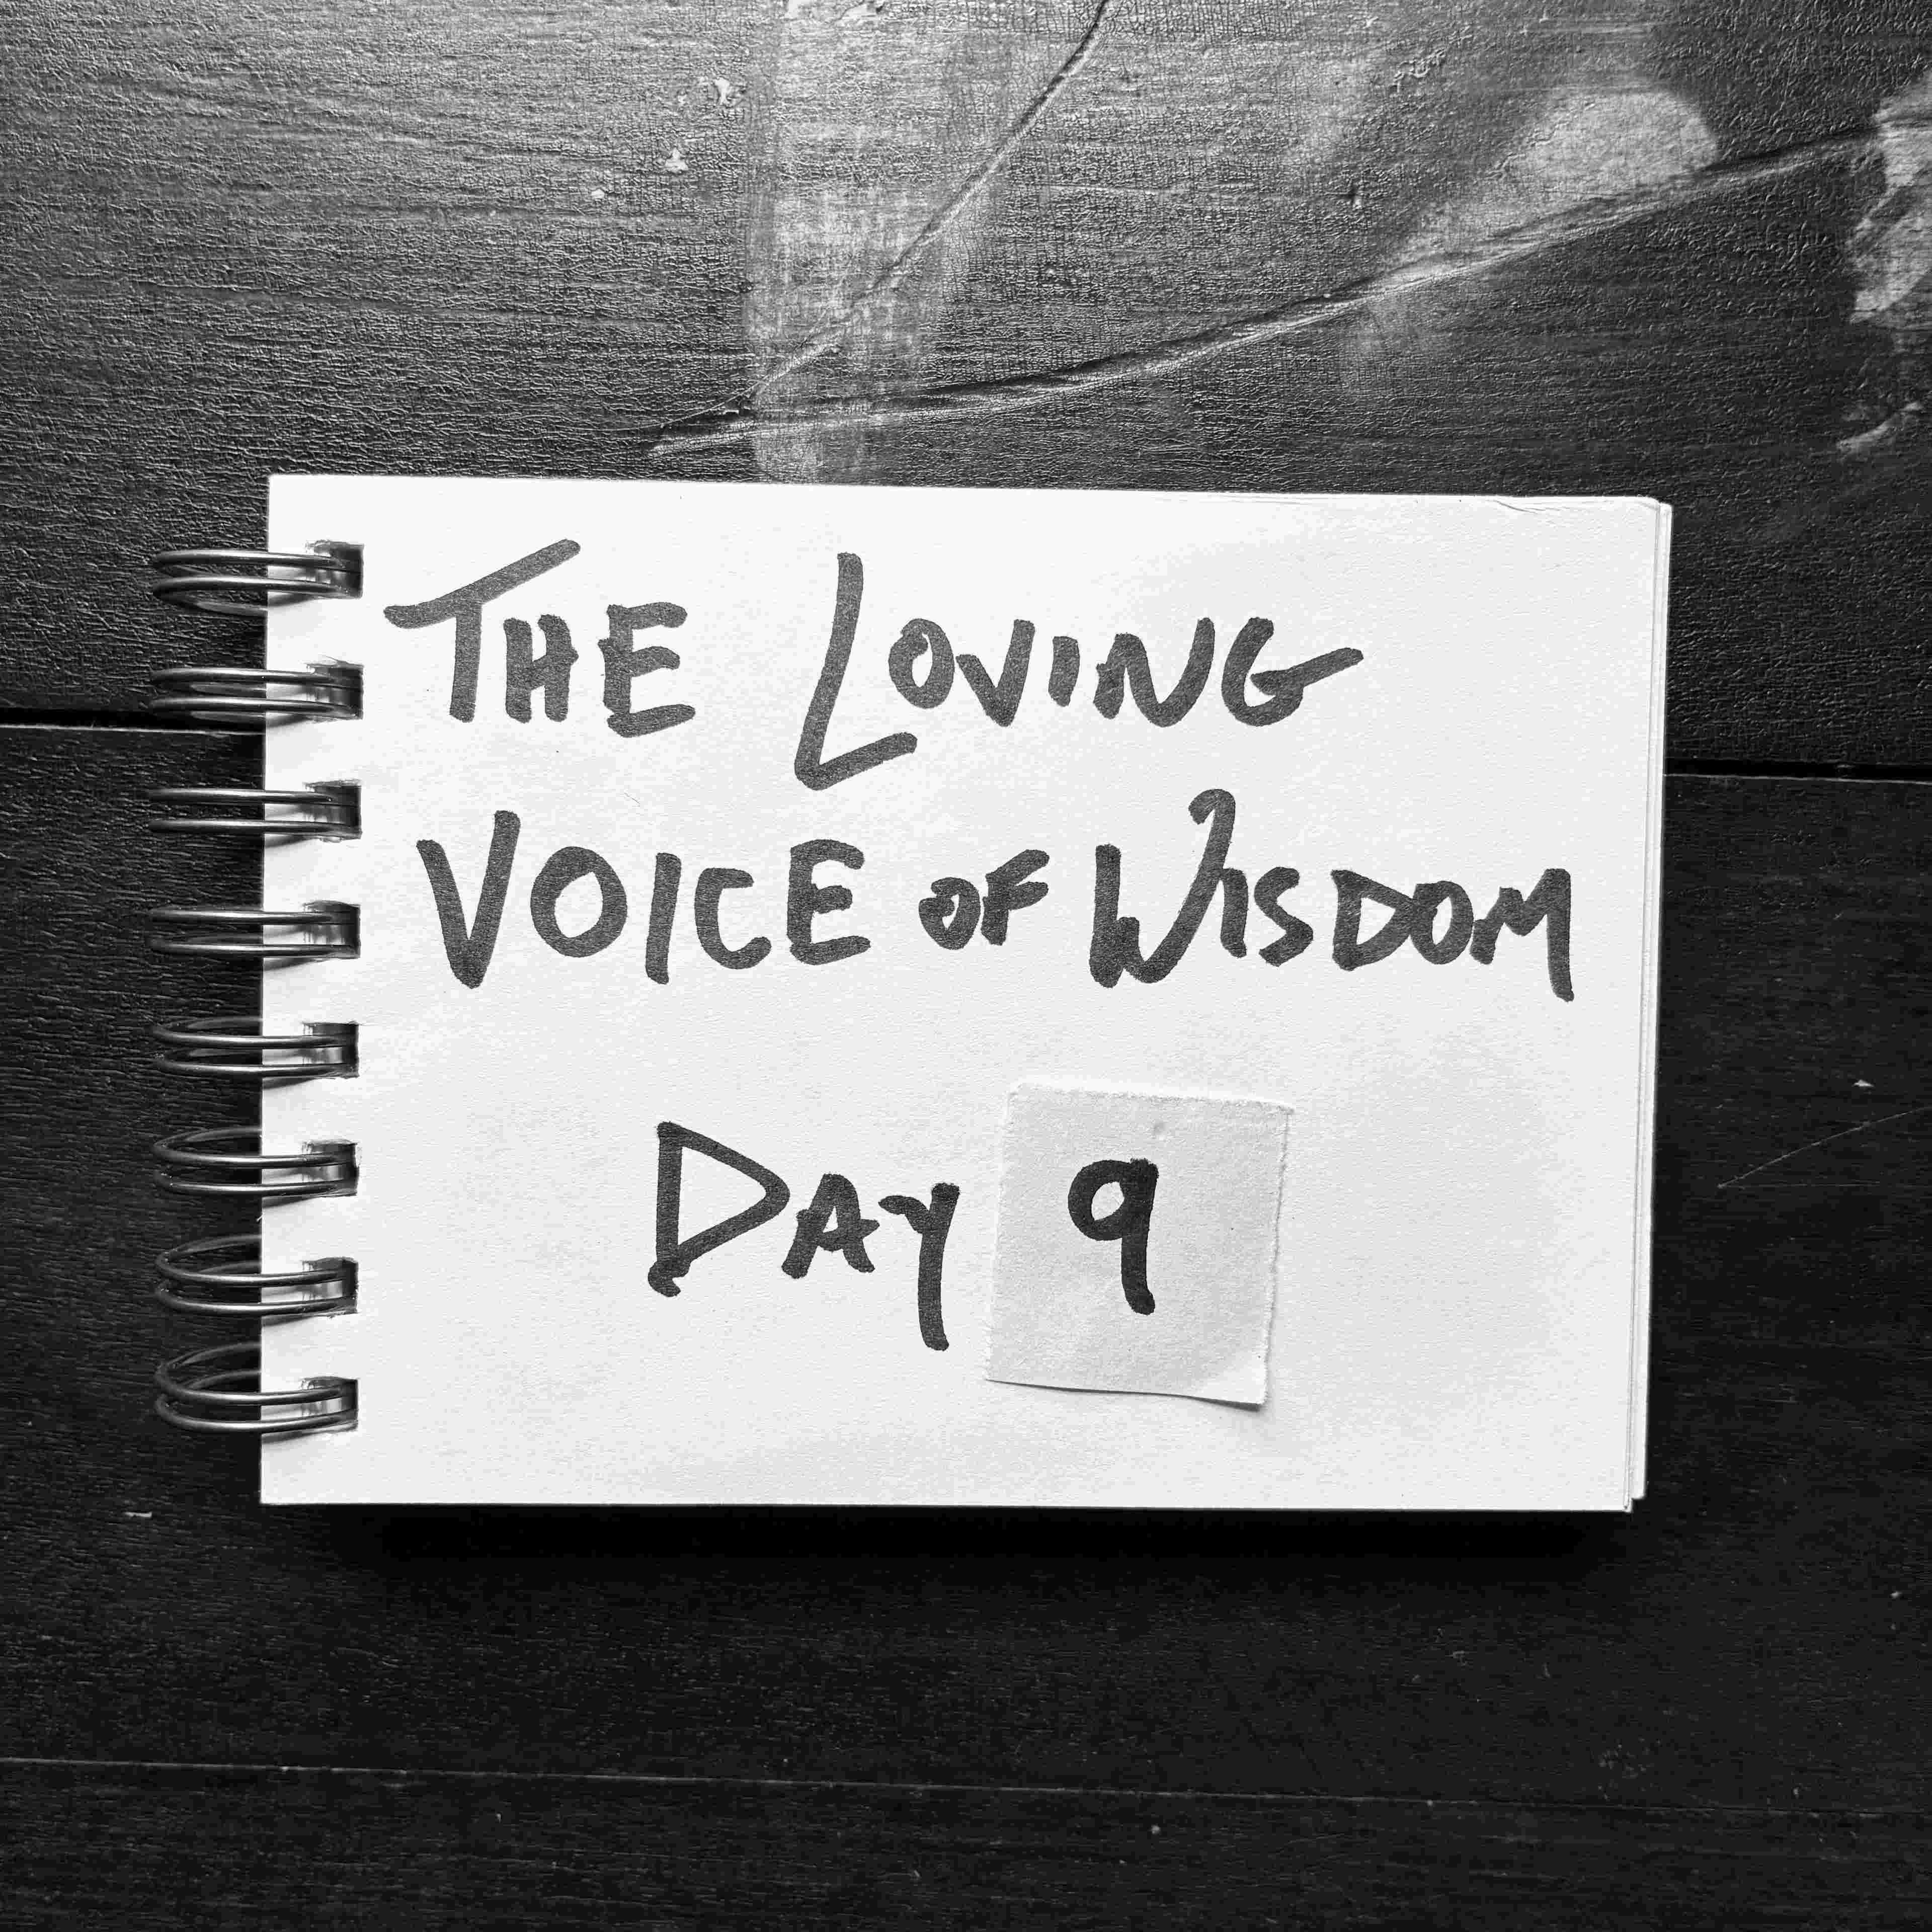 THE LOVING
VOICE OF WISDOM
DAY 9